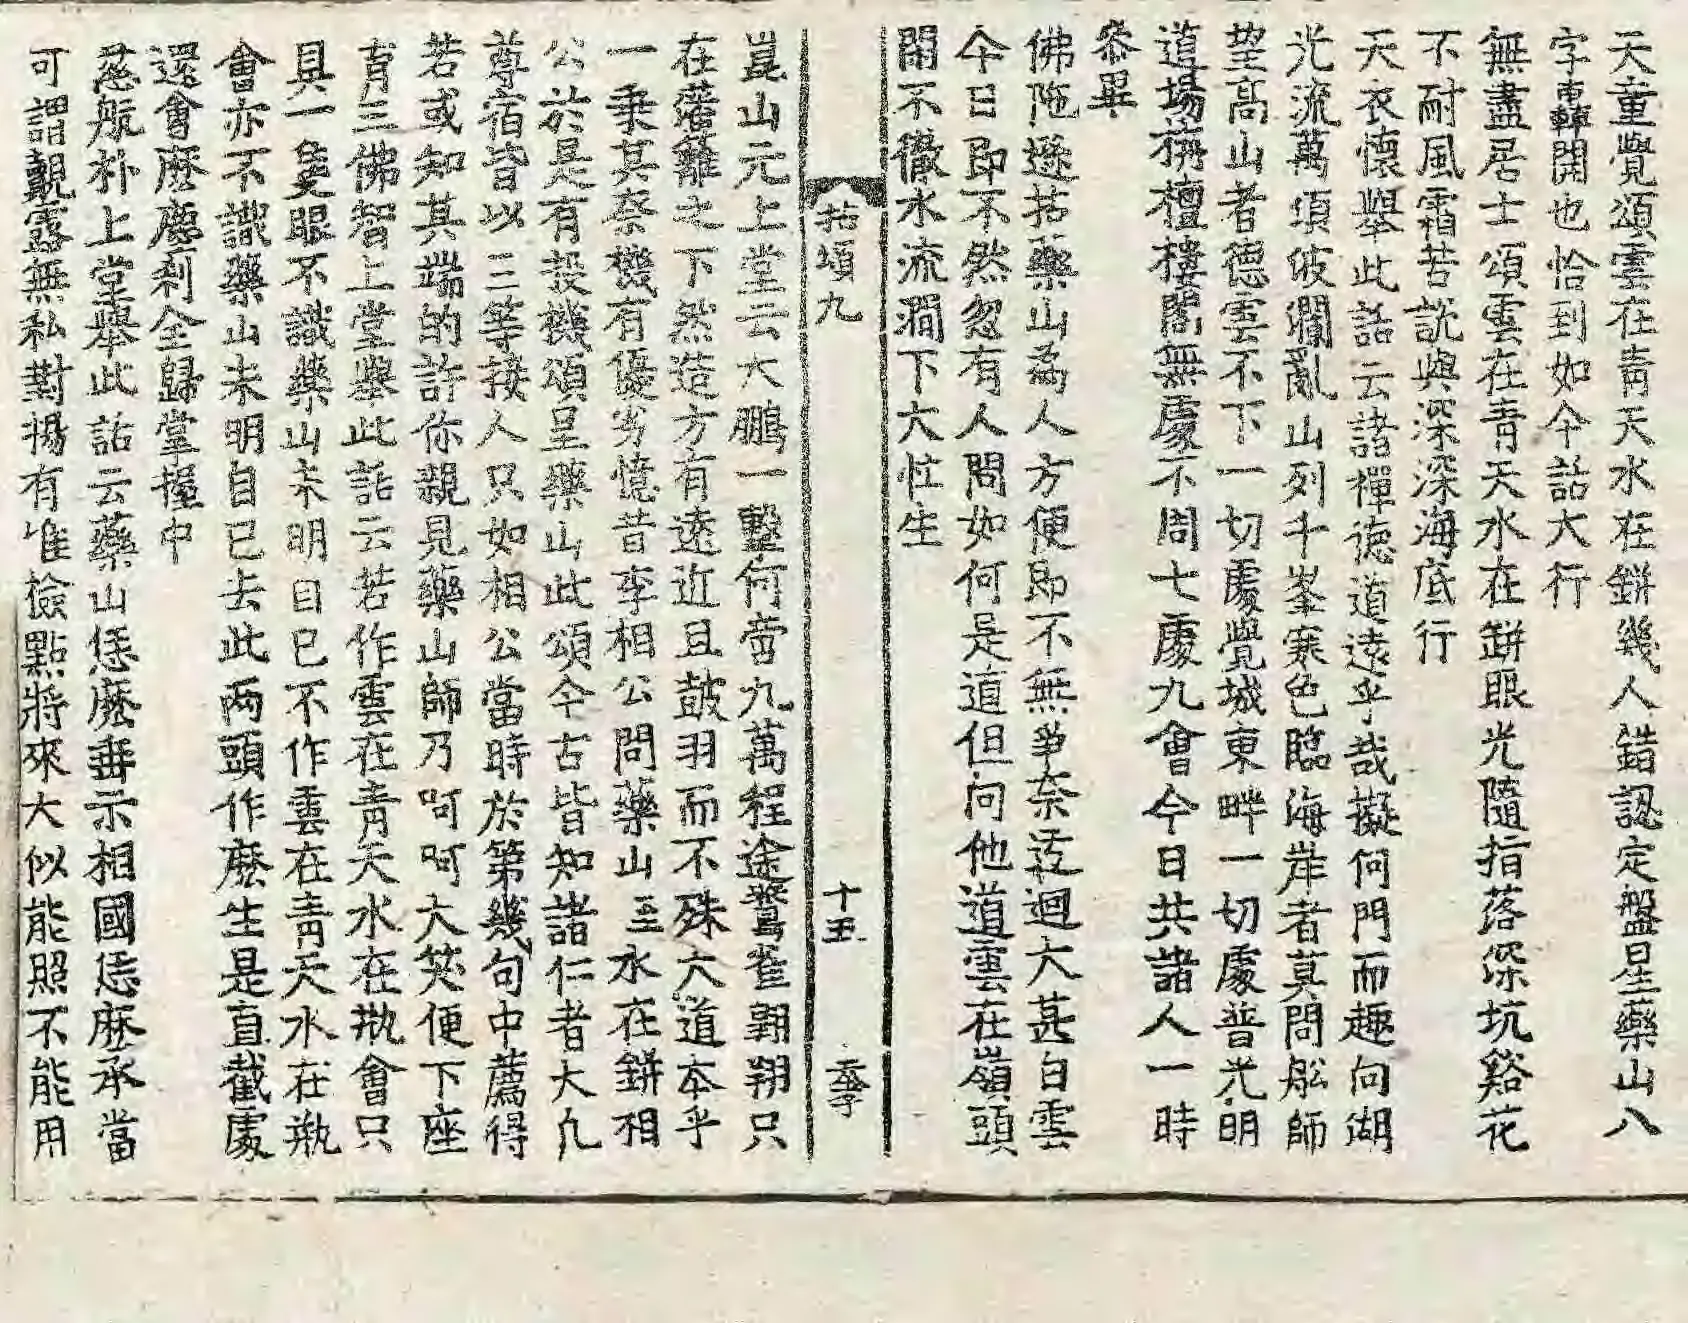 天童覺頌雲在靑天水在缾幾人錯認定盤星藥山八
字轉開也恰到如今話大行
無盡居士頌雲在靑天水在缾眼光隨指落深坑谿花
不耐風霜苦說與深深海底行
天衣懷擧此話云諸禪德道遠乎哉擬何門而趣向湖
光流萬頃波瀾亂山列千峯寒色臨海岸者莫問舩師
望高山者德雲不下一切處覺城東畔一切處普光明
道場栴檀樓閣無處不周七處九會今日共諸人一時
叅畢
佛陁遜拈藥山爲人方便卽不無爭奈迃迴大甚白雲
今日卽不然忽有人問如何是道但向他道雲在嶺頭
閑不徹水流澗下大忙生
拈頌九 十五
崑山元上堂云大鵬一擧何啻九萬程途鷰雀翺翔只
在藩籬之下然造方有遠近且皷羽而不殊大道本乎
一乘其叅機有優劣憶昔李相公問藥山至水在缾相
公於是有投機頌呈藥山此頌今古皆知諸仁者大凡
尊宿皆以三等接人只如相公當時於第幾句中薦得
若或知其端的許你親見藥山師乃呵呵大笑便下座
育三佛智上堂擧此話云若作雲在靑天水在缾會只
具一隻眼不識藥山未明自已不作雲在靑天水在缾
會亦不識藥山未明自已去此两頭作麽生是直截處
還會麽塵刹全歸掌握中
慈航朴上堂擧此話云藥山恁麽垂示相國恁麽承當
可謂覿露無私對揚有准檢點將來大似能照不能用